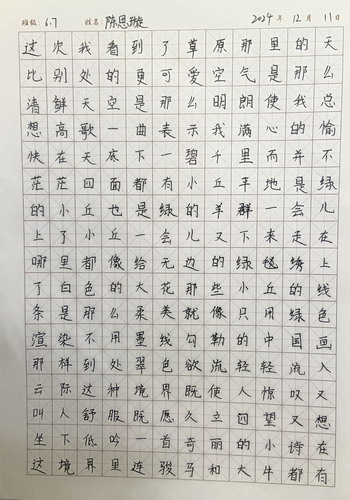 班级：6.7 姓名：陈恩璇 2024年12月11日
这次我看到了草原那里的天
比别处的更可爱空气是那么
清鲜天空是那么明朗使我总
想高歌一曲表示我满心的愉
快在天底下一碧千里而并不
茫茫四面都有小丘平地是绿
的小丘也是绿的羊群一会儿
上了小丘一会儿又下来走在
哪里都像给无边的绿毯绣上
了白色的大花那些小丘的线
条是那么柔美就像只用绿色
渲染不用墨线勾勒的中国画
那样到处翠色欲流轻轻流入
云际这种境界既使人惊叹又
叫人舒服既愿久立四望又想
坐下低吟一首奇丽的小诗在
这境界里连骏马和大牛都有